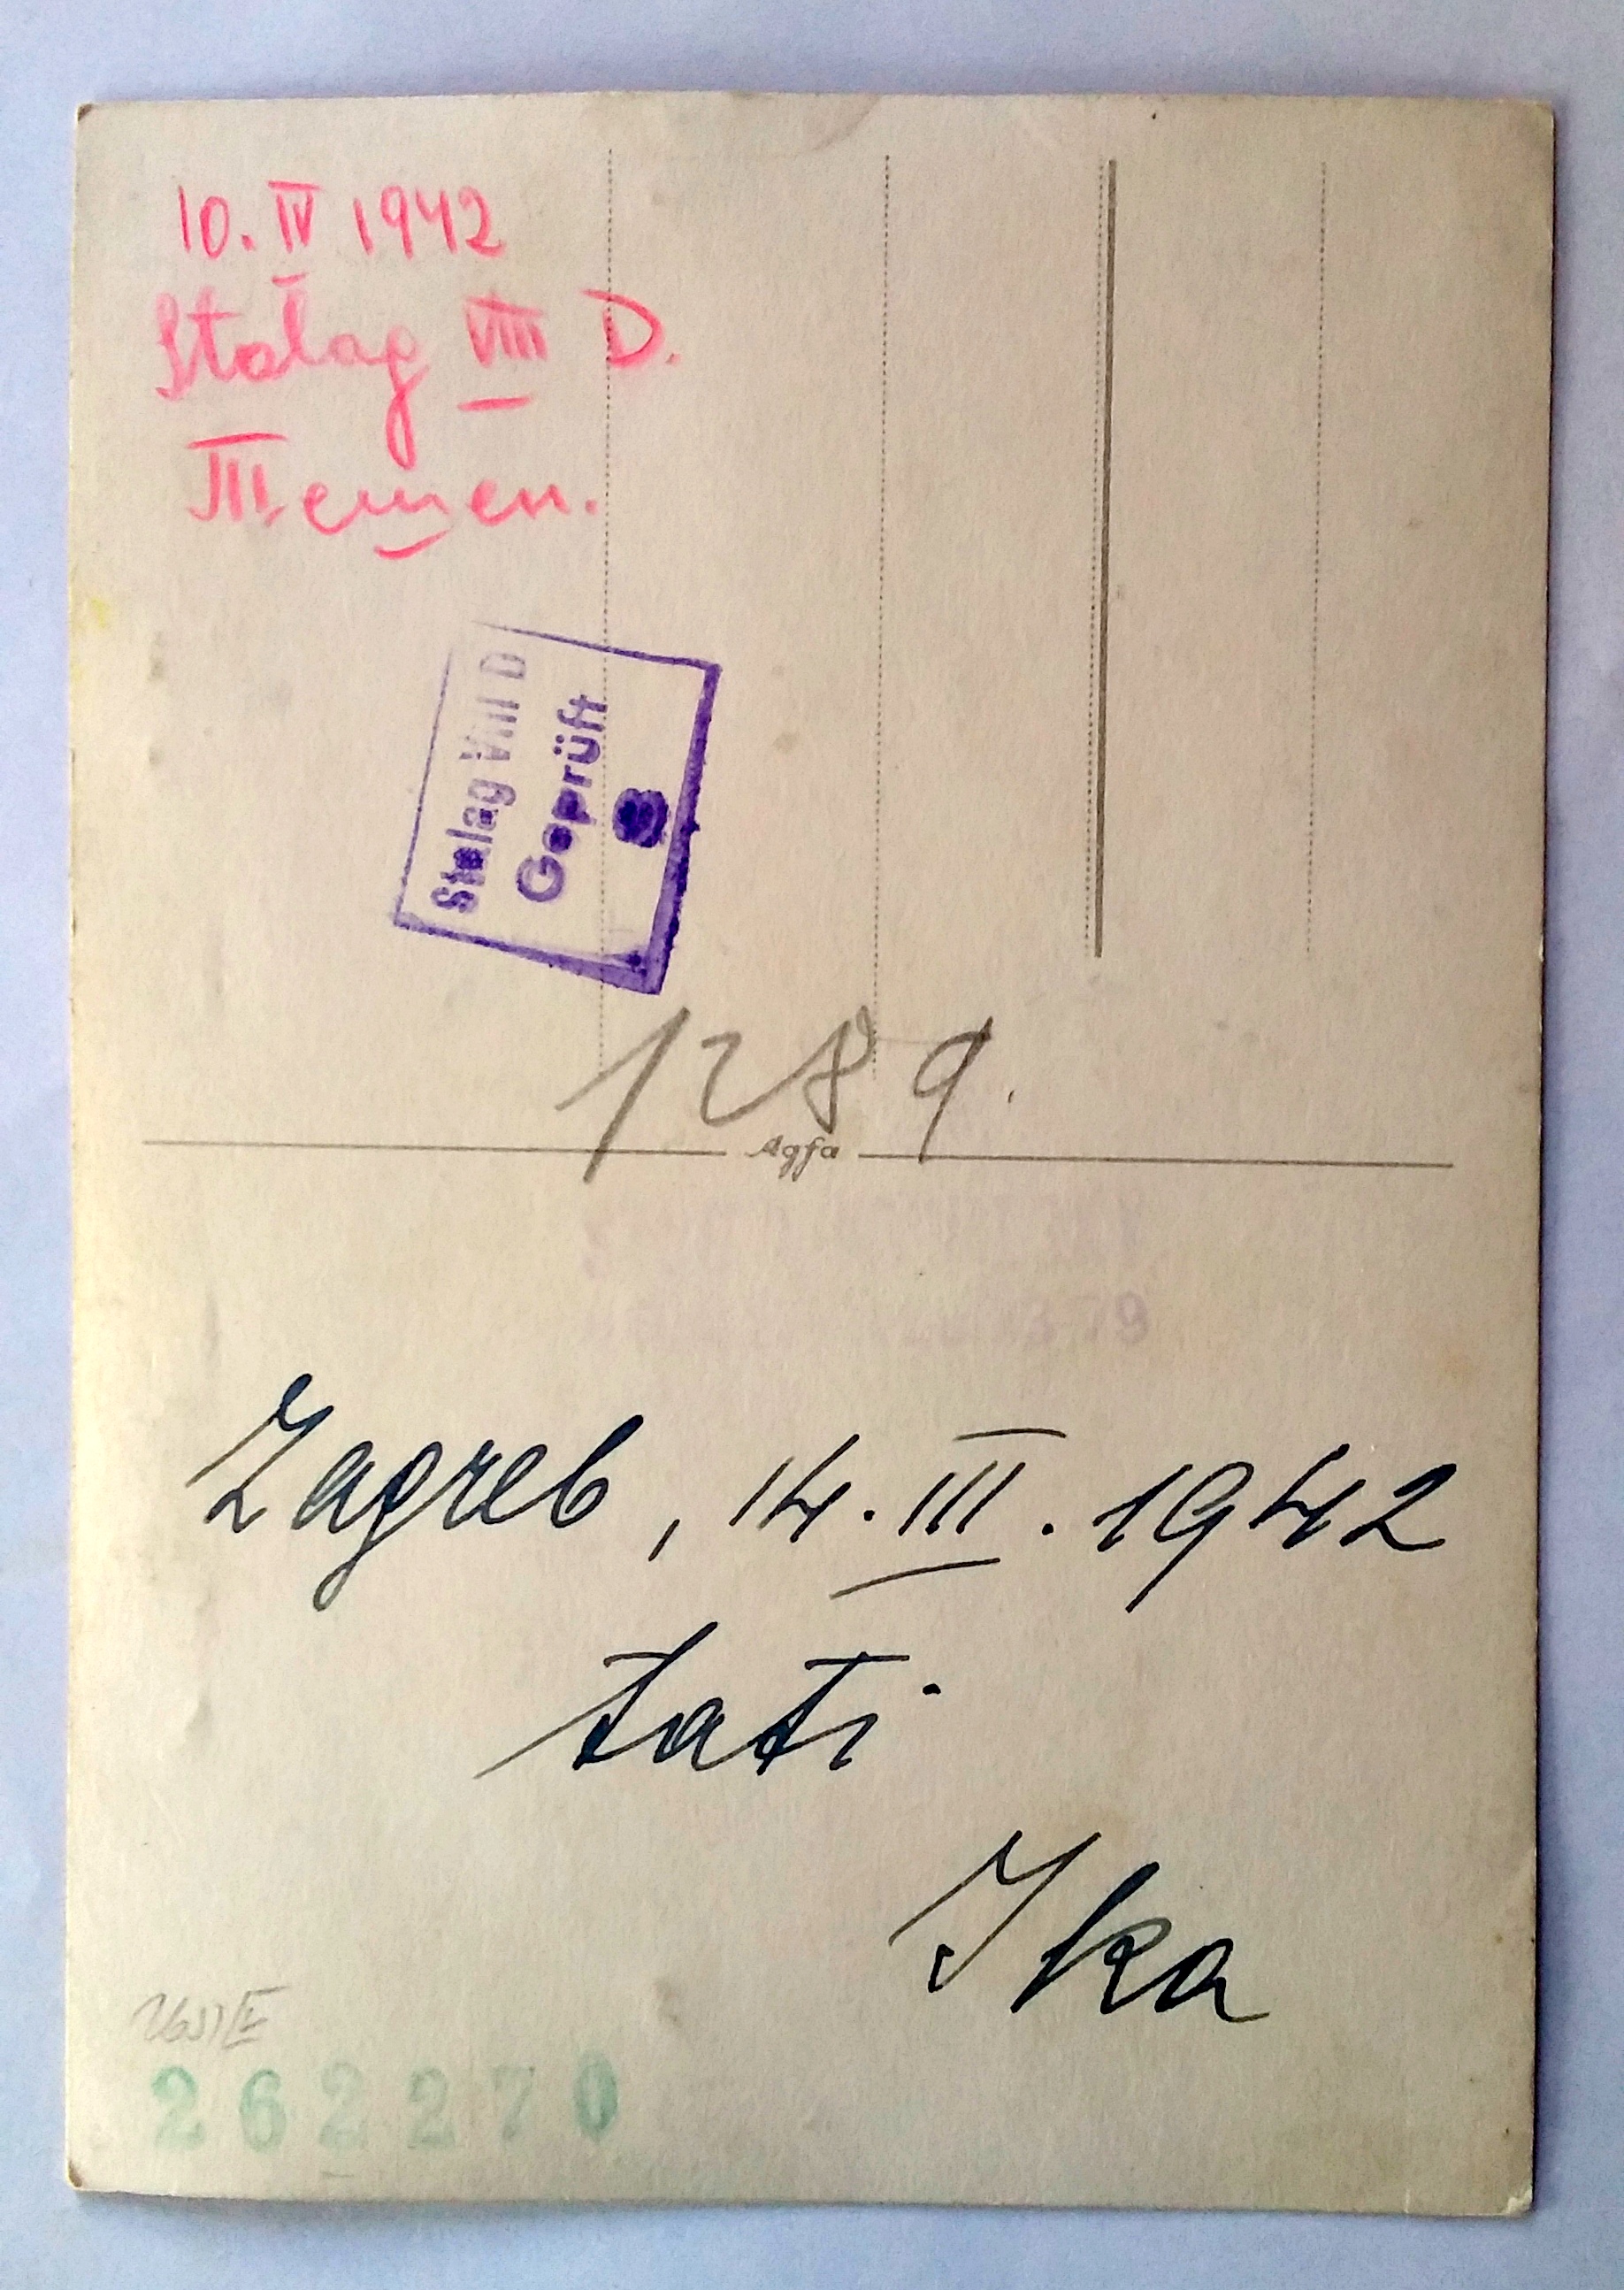 10. IV 1942
Stalag VIII D.
Stalag VIII D
Geprüft
1289.
Agfa
379
Zagreb, 14. III. 1942
tati
Ika
262270